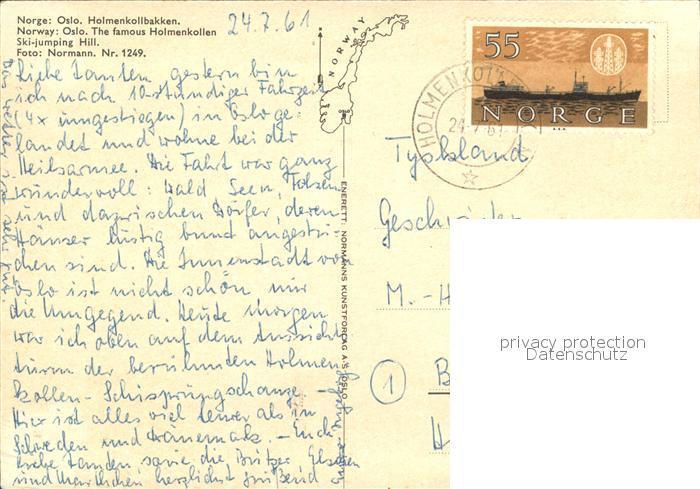 Norge: Oslo. Holmenkollbakken.
Norway: Oslo. The famous Holmenkollen
Ski-jumping Hill.
Foto: Normann. Nr. 1249.
24.7.61
Liebe Tanten, gestern bin
ich nach 10stündiger Fahrzeit
(4x umgestiegen) in Oslo ge-
landet und wohne bei der
Heilsarmee. Die Fahrt war ganz
wundervoll: Wald Seen, Felsen
und dazwischen Dörfer, deren
Häuser lustig bunt angestri-
chen sind. Die Innenstadt von
Oslo ist nicht schön nur
die Umgegend. Heute morgen
war ich oben auf dem Aussichts-
turm der berühmten Holmen-
kollen - Schisprungschanze. -
Hier ist alles viel teurer als in
Schweden und Dänemark. - Euch
Tanten sowie die
und herzlichst grüßend
Das Wetter ist sehr gut.
NORWAY
ENERETT: NORMANNS KUNSTFORLAG A.S. OSLO
55
NORGE
HOLMENKOLLEN
24.7.61
Tyskland
Geschwister
M.-H
1 B
H
privacy protection
Datenschutz